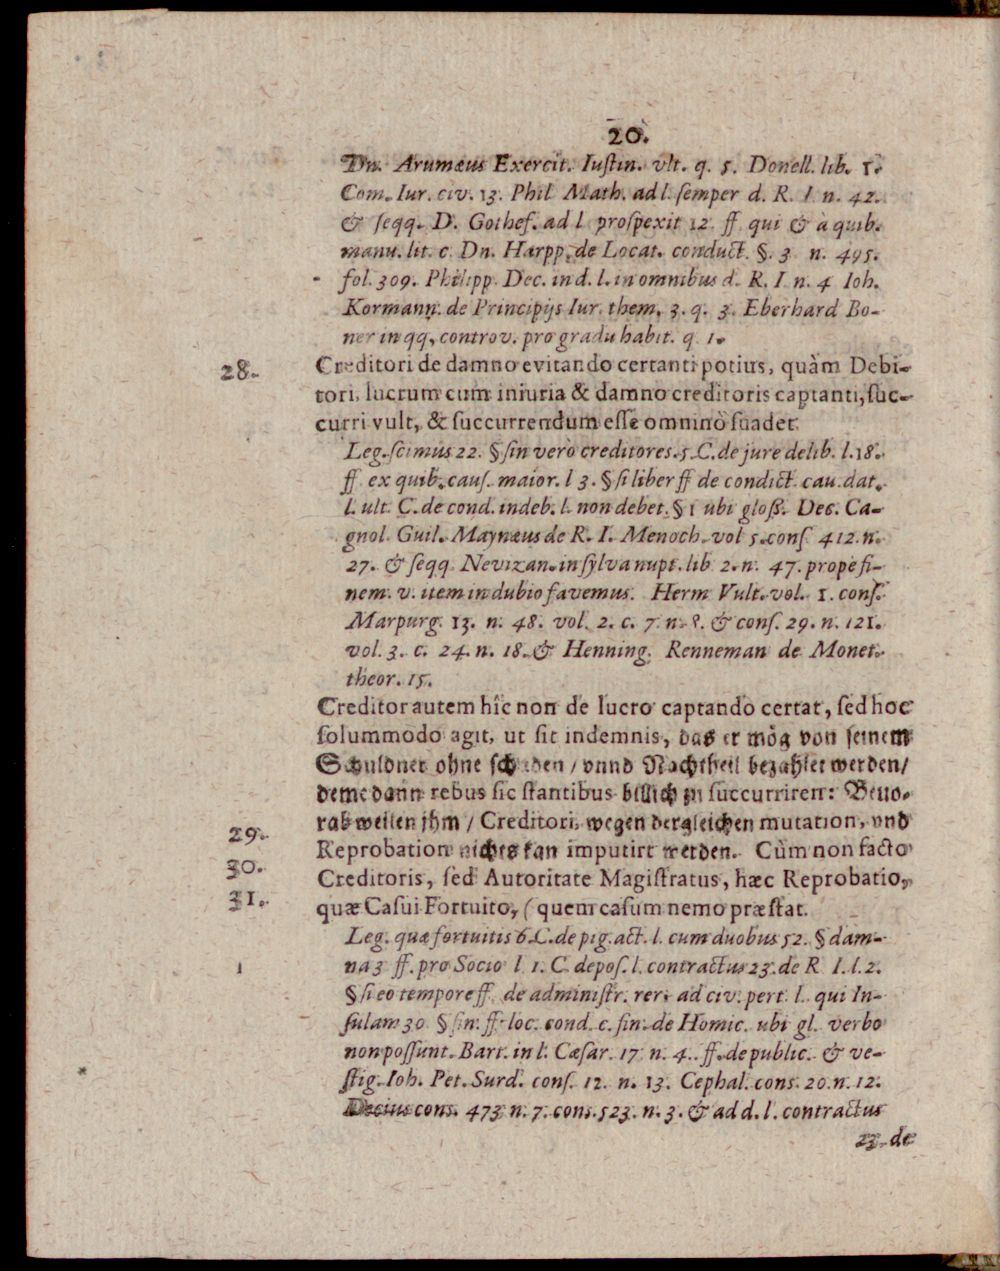 20.
Dn. Arumæus Exercit. Iuſtin. vlt. q. 5. Donell. lib. 1.
Com. Iur. civ. 13. Phil Math. ad l. ſemper d. R. I n. 42.
& ſeqq. D. Gothef. ad l proſpexit 12. ff qui & à quib.
manu. lit. c. Dn. Harpp. de Locat. conduct. §. 3 n. 495.
fol. 309. Philipp. Dec. in d. l. in omnibus d. R. I. n. 4 Ioh.
Kormann. de Principijs Iur. them. 3. q. 3. Eberhard Bo-
ner in qq, controv. pro gradu habit. q 1.
28. Creditori de damno evitando certanti potius, quàm Debi-
tori, lucrum cum iniuria & damno creditoris captanti, ſuc-
curri vult, & ſuccurrendum eſſe omninò ſuadet.
Leg. ſcimus 22. § ſin verò creditores. 5. C. de jure delib. l. 18.
ff ex quib. cauſ. maior. l 3. § ſi liber ff de condict. cau. dat.
l. ult. C. de cond. indeb. l. non debet. § 1 ubi gloß. Dec. Ca-
gnol. Guil. Maynæus de R. I. Menoch. vol 5. conſ 412. n.
27. & ſeqq. Nevizan. in ſylva nupt. lib 2. n. 47. prope fi-
nem. v. item in dubio favemus. Herm Vult. vol. 1. conſ.
Marpurg. 13. n. 48. vol. 2. c. 7. n. 8. & conſ. 29. n. 121.
vol. 3. c. 24. n. 18. & Henning. Renneman de Monet.
theor. 15.
Creditor autem hîc non de lucro captando certat, ſed hoc
ſolummodo agit, ut ſit indemnis, das er mög von ſeinem
Schuldner ohne ſchaden / vnnd Nachtheil bezahlet werden /
deme dann rebus ſic ſtantibus billich zu ſuccurriren: Beuo-
rab weilen jhm / Creditori, wegen dergleichen mutation, vnd
29. Reprobation nichts kan imputirt werden. Cùm non facto
30. Creditoris, ſed Autoritate Magiſtratus, hæc Reprobatio,
31. quæ Caſui Fortuito, (quem caſum nemo præſtat.
Leg. quæ fortuitis 6. C. de pig. act. l. cum duobus 52. § dam-
na 3 ff. pro Socio l 1. C. depoſ. l. contractus 23. de R I. l. 2.
§ ſi eo tempore ff. de adminiſtr. rer. ad civ. pert. l. qui In-
ſulam 30 § fin. ff loc. cond. c. fin. de Homic. ubi gl. verbo
non poſſunt. Bart. in l. Cæſar. 17. n. 4. ff. de public. & ve-
ſtig. Ioh. Pet. Surd. conſ. 12. n. 13. Cephal. cons. 20. n. 12.
Decius cons. 473 n. 7. cons. 523. n. 3. & ad d. l. contractus
23. de